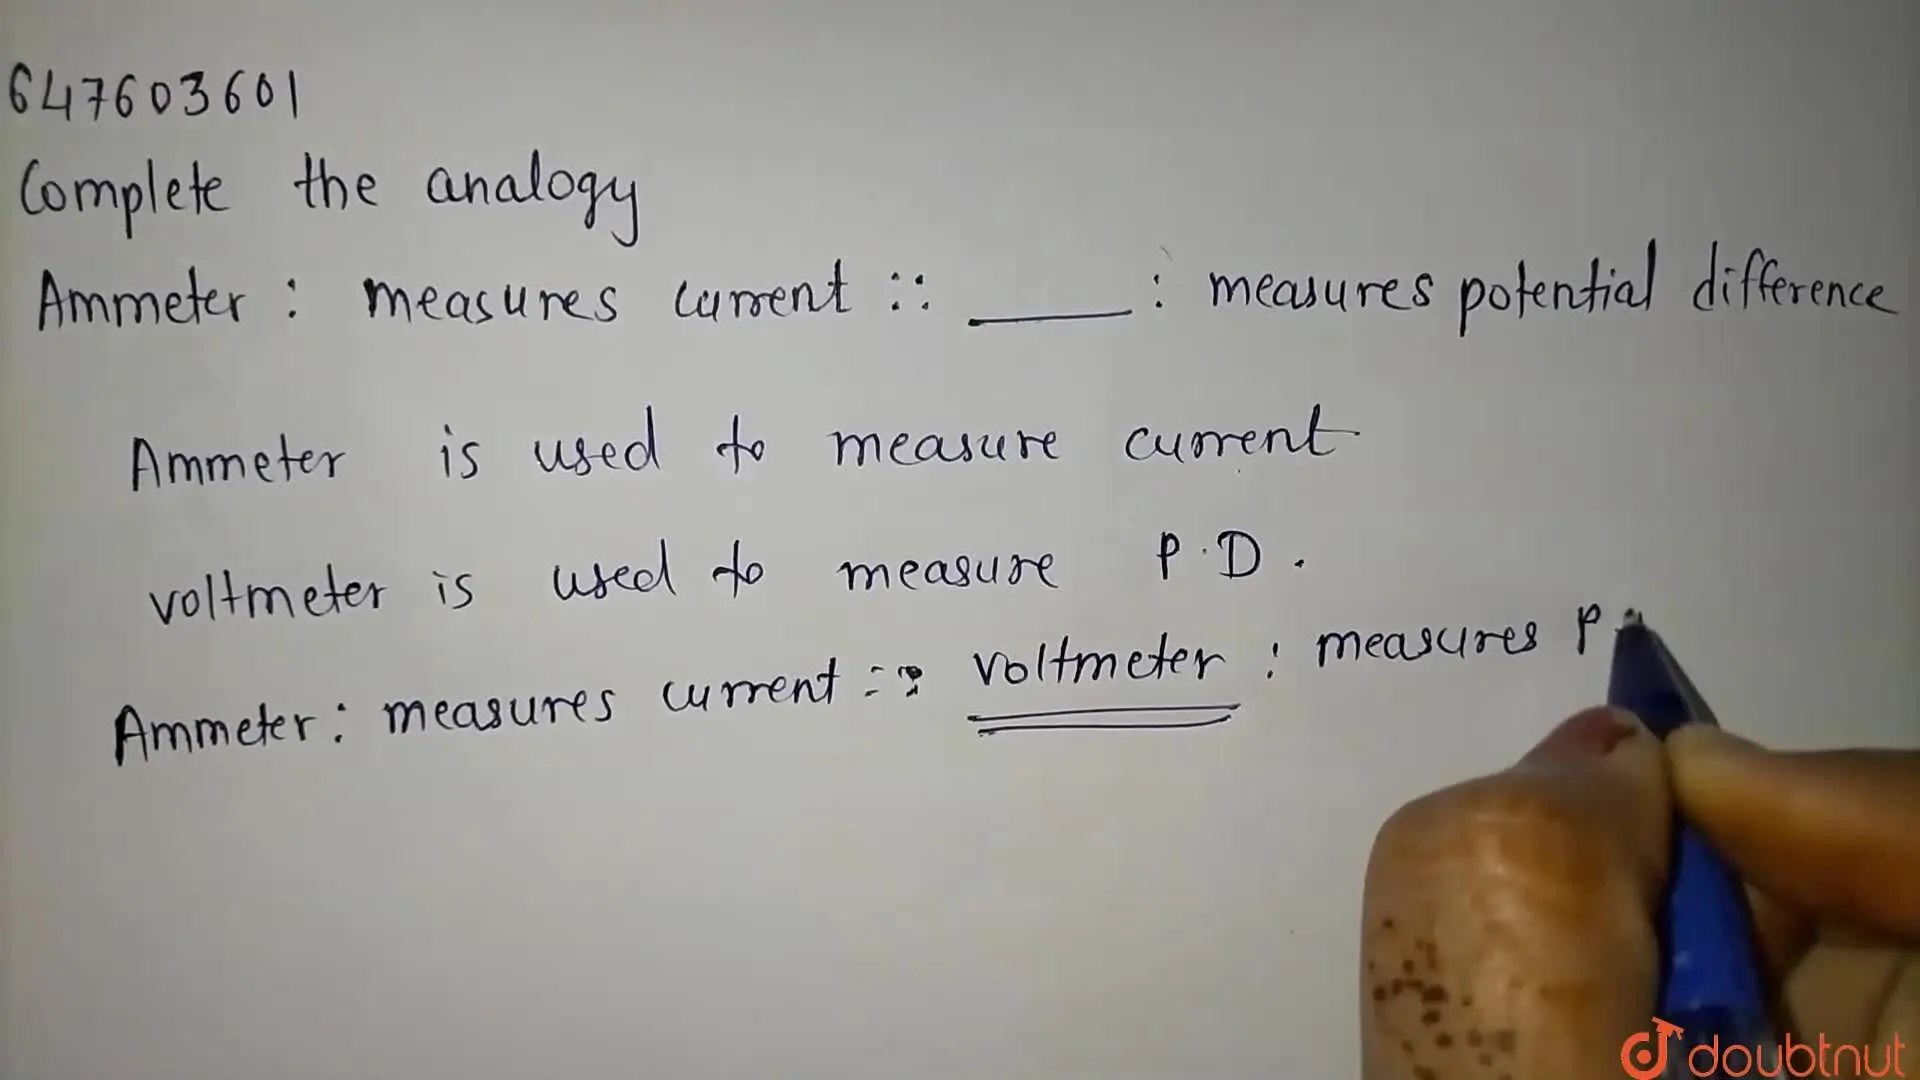 647603601
Complete the analogy
Ammeter : measures current :: ____ : measures potential difference
Ammeter is used to measure current
voltmeter is used to measure P.D.
Ammeter : measures current :: voltmeter : measures P
doubtnut